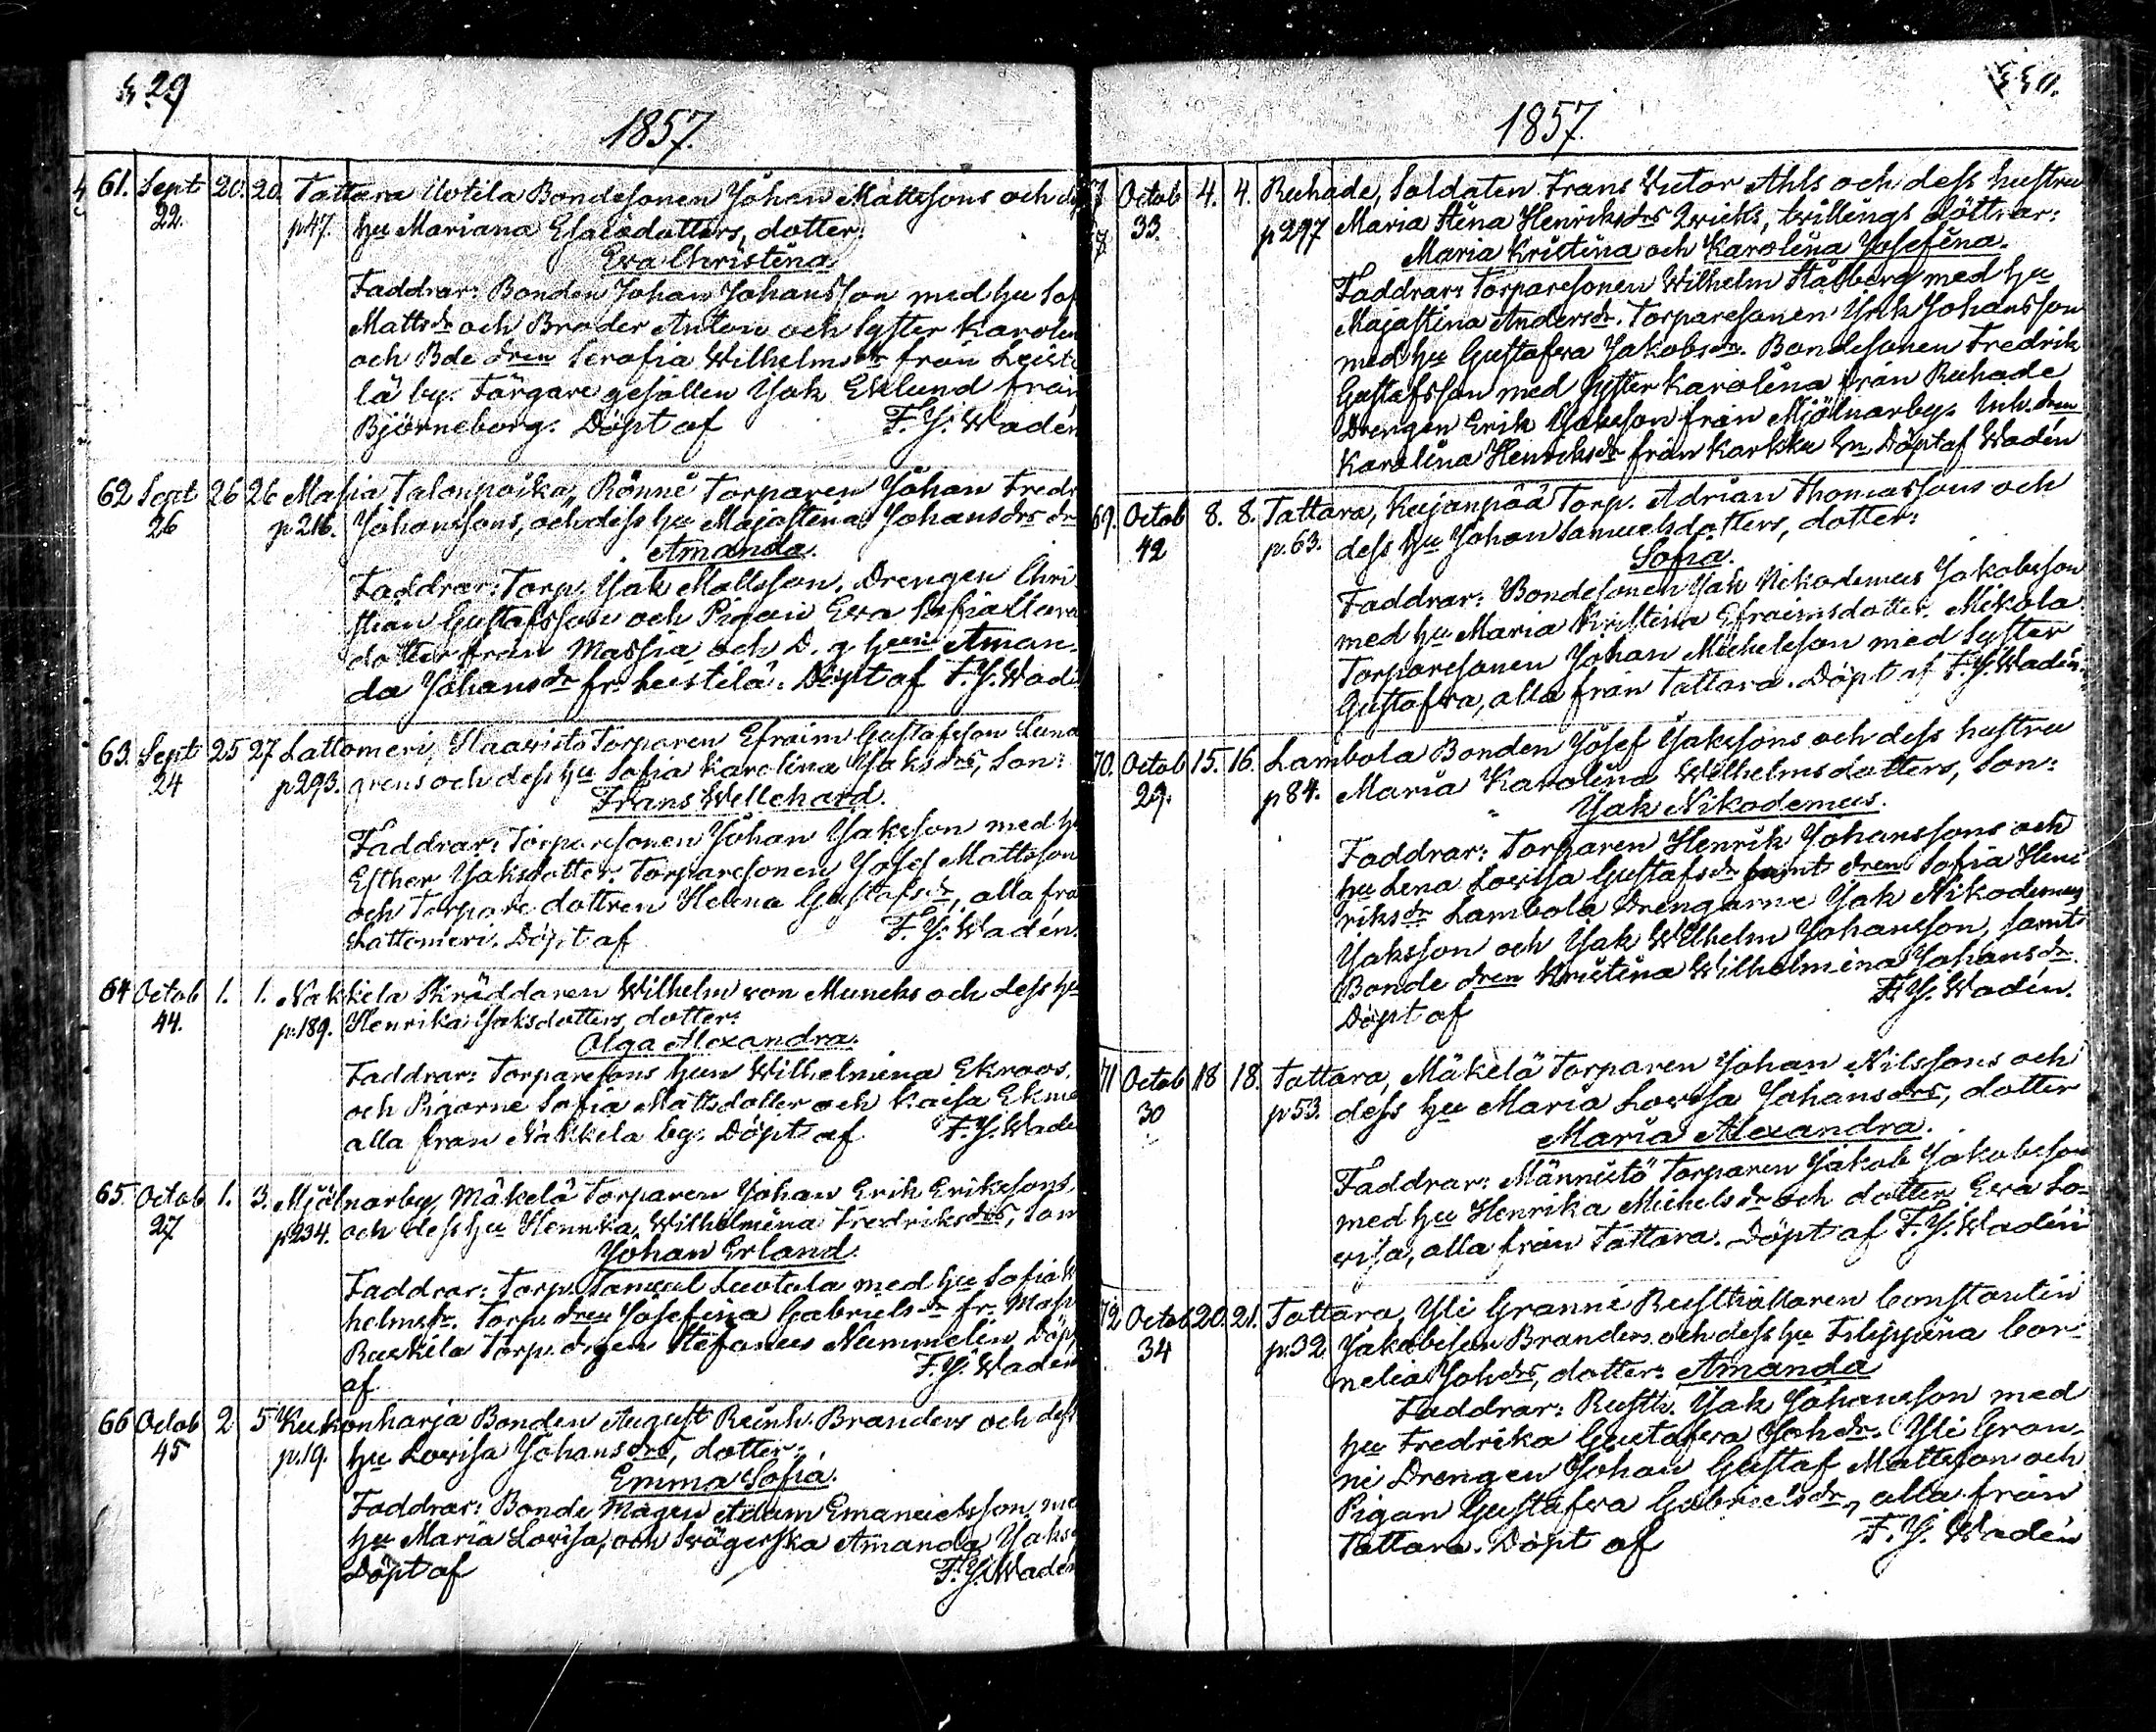 29
1857.
61. Sept 20. 20. Tattara Uotila Bondesonen Johan Mattssons och
22. p47. hu Mariana Esaiedotters, dotter:
Eva Christina
Faddrar: Bonden Johan Johansson med hu Sof
Matts dr och Broder Anton och Syster Karolin
och Bde dren Serafia Wilhelms dr från Leisti
lä by. Färgare gesällen Jak Eklund från
Björneborg. Döpt af F. J. Wadén
62 Sept 26 26 Masia Talonpoika, Rönni Torparen Johan Fredr
26 p216. Johanssons, och dess hu Majastina Johans drs dr
Amanda.
Faddrar: Torp. Jak Mattsson, Drengen Chri
stian Gustafsson och Pigan Eva Sofia
dotter från Massia och D. g. hun Aman-
da Johans dr fr. Leistilä. Döpt af F. J. Wad
63. Sept 25 27 Lattomeri, Haavisto Torparen Efraim Gustafsson Lund
24 p293. grens och dess hu Sofia Karolina Jaks drs, Son:
Frans Willehard.
Faddrar: Torparesonen Johan Jaksson med h
Esther Jaksdotter. Torparesonen Josef Mattsson
och Torpare dottren Helena Gustafs dr, alla fra
Lattomeri. Döpt af F. J. Wadén.
64 Octob 1. 1. Nakkila Skräddaren Wilhelm von Muncks och dess hu
44. p.189. Henrika Jaksdotters, dotter:
Olga Alexandra.
Faddrar: Torparesons hun Wilhelmina Ekroos,
och Pigorne Sofia Mattsdotter och Kaisa Ekm
alla från Nakkila by. Döpt af F. J. Wade
65. Octob 1. 3. Mjölnarby, Mäkelä Torparen Johan Erik Erikssons,
27 p234. och dess hu Henrika Wilhelmina Fredriks drs, Son
Johan Erland.
Faddrar: Torp. Samuel Luotola med hu Sofia W
helms dr. Torp. dren Josefina Gabriels dr fr. Mas
Ruskila Torp. drgen Stefanus Nummelin, Döp
af F. J. Wadén
66 Octob 2 5 Kukonharja Bonden August Reinh. Branders och dess
45 p.19. hu Lovisa Johans drs, dotter:
Emma Sofia.
Faddrar: Bonde Mågen Adam Emanuelsson, me
hu Maria Lovisa, och Svägerska Amanda Jaks
Döpt af F. J. Wadén
1857.
Octob 4. 4. Ruhade, Soldaten Frans Victor Ahls och dess hustru
33. p297 Maria Stina Henriks drs Qvicks, tvillings döttrar:
Maria Kristina och Karolina Josefina.
Faddrar: Torparesonen Wilhelm Stålberg med hu
Majastina Anders dr. Torparesonen Isak Johansson
med hu Gustafva Jakobs dr. Bondesonen Fredrik
Gustafsson med Syster Karolina från Ruhade
Drengen Erik Jaksson från Mjölnarby. Inh. dren
Karolina Henriks dr från Karkku Sn Döpt af Wadén
69. Octob 8. 8. Tattara, Kujanpää Torp. Adrian Thomassons och
42 p.63. dess hu Johan Samuelsdotters, dotter:
Sofia.
Faddrar: Bondesonen Jak Nikodemus Jakobsson
med hu Maria Kristina Efraimsdotter. Mikola
Torparesonen Johan Michelsson med Syster
Gustafva, alla från Tattara. Döpt af F. J. Wadén.
70. Octob 15. 16. Lambola Bonden Josef Jakssons och dess hustru
29. p84. Maria Karolina Wilhelmsdotters, Son:
Jak Nikodemus.
Faddrar: Torparen Henrik Johanssons och
hu Lena Lovisa Gustafs dr samt dren Sofia Hen
riks dr Lambola Drengarne Jak Nikodemus
Jaksson och Jak Wilhelm Johansson, samt
Bonde dren Kristina Wilhelmina Johans dr.
Döpt af F. J. Wadén.
71 Octob 18 18. Tattara, Mäkelä Torparen Johan Nilssons och
30 p53. dess hu Maria Lovisa Johans drs, dotter
Maria Alexandra.
Faddrar: Männistö Torparen Jakob Jakobsson
med hu Henrika Michels dr och dotter Eva Lo-
visa, alla från Tattara. Döpt af F. J. Wadén
72 Octob 20. 21. Tattara, Yli Granni Rusthållaren Constantin
34 p.32 Jakobsson Branders och dess hu Filippina Cor-
nelia Joh drs, dotter: Amanda
Faddrar: Rusth. Jak Johansson med
hu Fredrika Gustafva Joh dr. Yli Gran-
ni Drengen Johan Gustaf Mattsson och
Pigan Gustafva Gabriels dr, alla från
Tattara. Döpt af F. J. Wadén